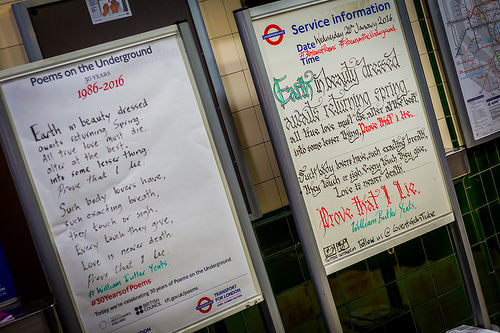 Poems on the Underground
30 YEARS
1986-2016
Earth in beauty dressed
awaits returning Spring.
All true love must die,
alter at the best
into some lesser thing.
Prove that I lie.
Such body lovers have,
such exacting breath,
they touch or sigh.
Every touch they give,
Love is nearer death.
Prove that I lie.
#William Butler Yeats.
#30YearsofPoems
Today we're celebrating 30 years of Poems on the Underground
BRITISH COUNCIL
tfl.gov.uk/poems
TRANSPORT FOR LONDON
Service information
Date Wednesday 20th January 2016.
Time #PoemsontheUnderground
Earth in beauty dressed
awaits returning spring.
All true love must die, alter at the best
into some lesser thing. Prove that I lie.
Such body lovers have, such exacting breath,
they touch or sigh. Every touch they give,
Love is nearer death.
Prove that I lie.
William Butler Yeats.
Follow us @